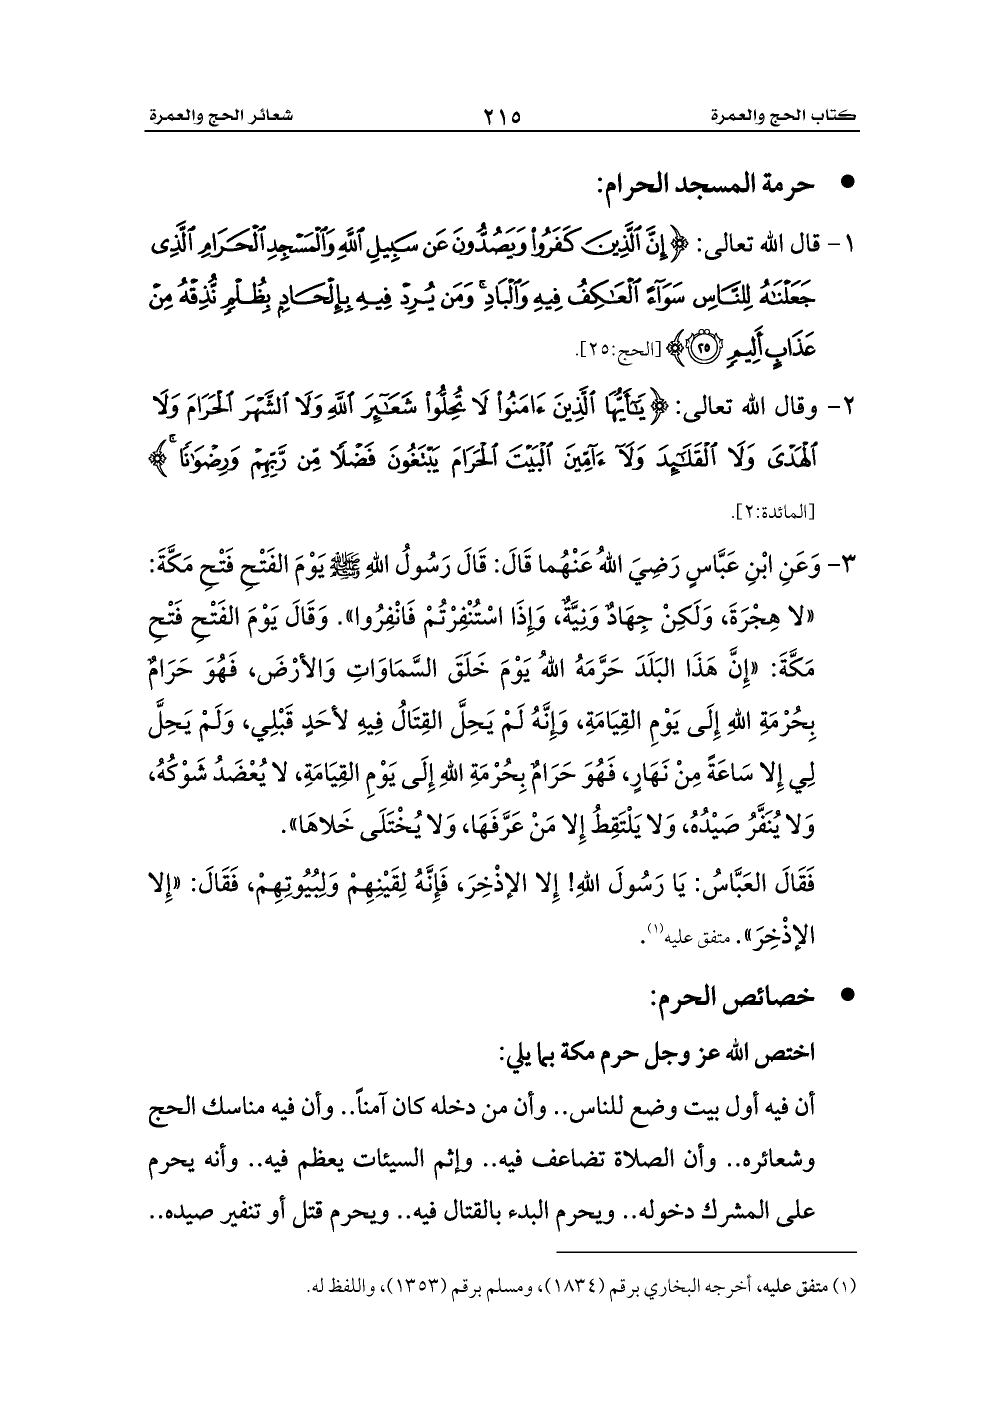 كتاب الحج والعمرة ٢١٥ شعائر الحج والعمرة
● حرمة المسجد الحرام:
١- قال الله تعالى: ﴿إِنَّ ٱلَّذِينَ كَفَرُواْ وَيَصُدُّونَ عَن سَبِيلِ ٱللَّهِ وَٱلْمَسْجِدِ ٱلْحَرَامِ ٱلَّذِى
جَعَلْنَٰهُ لِلنَّاسِ سَوَآءً ٱلْعَٰكِفُ فِيهِ وَٱلْبَادِ ۚ وَمَن يُرِدْ فِيهِ بِإِلْحَادٍۭ بِظُلْمٍ نُّذِقْهُ مِنْ
عَذَابٍ أَلِيمٍ ٢٥﴾ [الحج:٢٥].
٢- وقال الله تعالى: ﴿يَٰٓأَيُّهَا ٱلَّذِينَ ءَامَنُواْ لَا تُحِلُّواْ شَعَٰٓئِرَ ٱللَّهِ وَلَا ٱلشَّهْرَ ٱلْحَرَامَ وَلَا
ٱلْهَدْىَ وَلَا ٱلْقَلَٰٓئِدَ وَلَآ ءَآمِّينَ ٱلْبَيْتَ ٱلْحَرَامَ يَبْتَغُونَ فَضْلًا مِّن رَّبِّهِمْ وَرِضْوَٰنًا ۚ﴾
[المائدة:٢].
٣- وَعَنِ ابْنِ عَبَّاسٍ رَضِيَ اللهُ عَنْهُما قَالَ: قَالَ رَسُولُ اللهِ ﷺ يَوْمَ الفَتْحِ فَتْحِ مَكَّةَ:
«لا هِجْرَةَ، وَلَكِنْ جِهَادٌ وَنِيَّةٌ، وَإِذَا اسْتُنْفِرْتُمْ فَانْفِرُوا». وَقَالَ يَوْمَ الفَتْحِ فَتْحِ
مَكَّةَ: «إِنَّ هَذَا البَلَدَ حَرَّمَهُ اللهُ يَوْمَ خَلَقَ السَّمَاوَاتِ وَالأرْضَ، فَهُوَ حَرَامٌ
بِحُرْمَةِ اللهِ إِلَى يَوْمِ القِيَامَةِ، وَإِنَّهُ لَمْ يَحِلَّ القِتَالُ فِيهِ لأحَدٍ قَبْلِي، وَلَمْ يَحِلَّ
لِي إِلا سَاعَةً مِنْ نَهَارٍ، فَهُوَ حَرَامٌ بِحُرْمَةِ اللهِ إِلَى يَوْمِ القِيَامَةِ، لا يُعْضَدُ شَوْكُهُ،
وَلا يُنَفَّرُ صَيْدُهُ، وَلا يَلْتَقِطُ إِلا مَنْ عَرَّفَهَا، وَلا يُخْتَلَى خَلاهَا».
فَقَالَ العَبَّاسُ: يَا رَسُولَ اللهِ! إِلا الإذْخِرَ، فَإِنَّهُ لِقَيْنِهِمْ وَلِبُيُوتِهِمْ، فَقَالَ: «إِلا
الإذْخِرَ». متفق عليه(١).
● خصائص الحرم:
اختص الله عز وجل حرم مكة بما يلي:
أن فيه أول بيت وضع للناس.. وأن من دخله كان آمناً.. وأن فيه مناسك الحج
وشعائره.. وأن الصلاة تضاعف فيه.. وإثم السيئات يعظم فيه.. وأنه يحرم
على المشرك دخوله.. ويحرم البدء بالقتال فيه.. ويحرم قتل أو تنفير صيده..
(١) متفق عليه، أخرجه البخاري برقم (١٨٣٤)، ومسلم برقم (١٣٥٣)، واللفظ له.